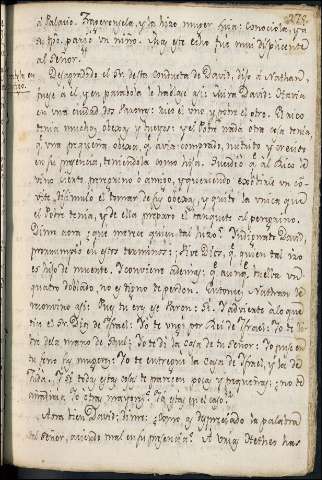 a Palacio. Traperonzela, y la hizo muger suya: conociola, y a
su tpõ. pariò un niño. Mas este echo fue mui displicente
al Señor.
Desagradado el Sr. desta conducta de David, dijo a Nathand,
fuese a èl, y en parabola le hablase asi: Mira David: Havia
en una ciudad dos Varones: rico el uno, y pobre el otro. El Rico
tenia muchas obejas, y bueyes: y el Pobre nada otra cosa tenia,
q. una pequeña obeja, q. avia comprado, nutrido, y crecido
en su presencia, teniendola como hija. Sucediò q. al Rico le
vino cierto peregrino ò amigo, y queriendo exibirle un co-
vite, disimulò el tomar de sus obejas, y quitò la unica que
el Pobre tenia, y de ella preparò el banquete al peregrino.
Dime aora: que merece quien tal hizo? Indignado David,
prorrumpiò en estos terminos: Vive Dios, q. quien tal izo
es hijo de muerte. Y conviene ademas, q. aunq. buelba un
quatro doblado, no es digno de perdon. Entonces Nathan le
reconvino asi: Pues tu eres ese Varon: Si. Y advierte a lo que
dice el Sr. Dios de Israel: Yo te ungi por Rei de Israel: Yo te li-
bre de la mano de Saul: Yo te di la casa de tu Señor: Yo puse en
tu seno sus mugeres: Yo te entreguè la casa de Israel, y la de
Juda. Y si todas estas cosas te parecen pocas, y pequeñas; no te
añadiria Yo otras mayores?
Aora bien David: dime: Como as despreciado la palabra
del Señor, aciendo mal en su presencia? A Urias Hetheo has